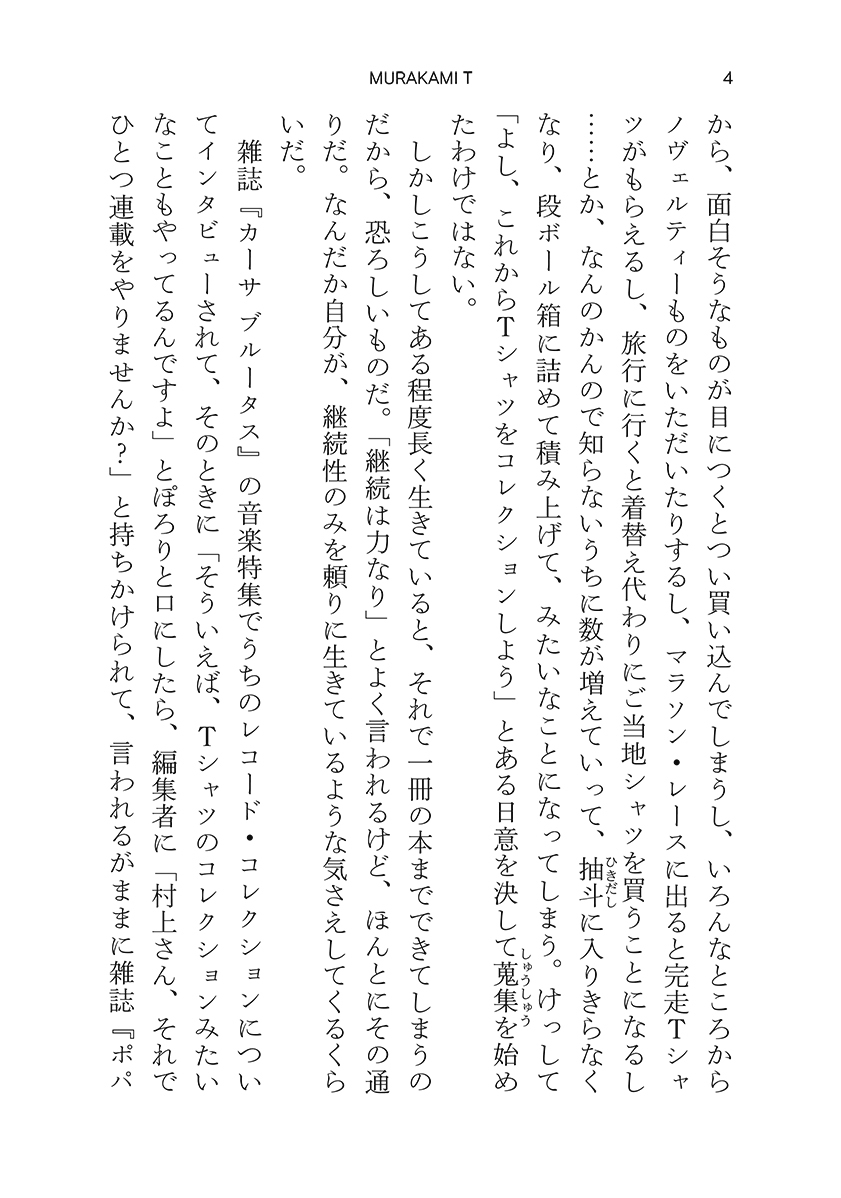 MURAKAMI T
4
から、面白そうなものが目につくとつい買い込んでしまうし、いろんなところから
ノヴェルティーものをいただいたりするし、マラソン・レースに出ると完走Tシャ
ツがもらえるし、旅行に行くと着替え代わりにご当地シャツを買うことになるし
……とか、なんのかんので知らないうちに数が増えていって、抽斗に入りきらなく
ひきだし
なり、段ボール箱に詰めて積み上げて、みたいなことになってしまう。けっして
「よし、これからTシャツをコレクションしよう」とある日意を決して蒐集を始め
しゅうしゅう
たわけではない。
しかしこうしてある程度長く生きていると、それで一冊の本までできてしまうの
だから、恐ろしいものだ。「継続は力なり」とよく言われるけど、ほんとにその通
りだ。なんだか自分が、継続性のみを頼りに生きているような気さえしてくるくら
いだ。
雑誌『カーサ ブルータス』の音楽特集でうちのレコード・コレクションについ
てインタビューされて、そのときに「そういえば、Tシャツのコレクションみたい
なこともやってるんですよ」とぽろりと口にしたら、編集者に「村上さん、それで
ひとつ連載をやりませんか？」と持ちかけられて、言われるがままに雑誌『ポパ